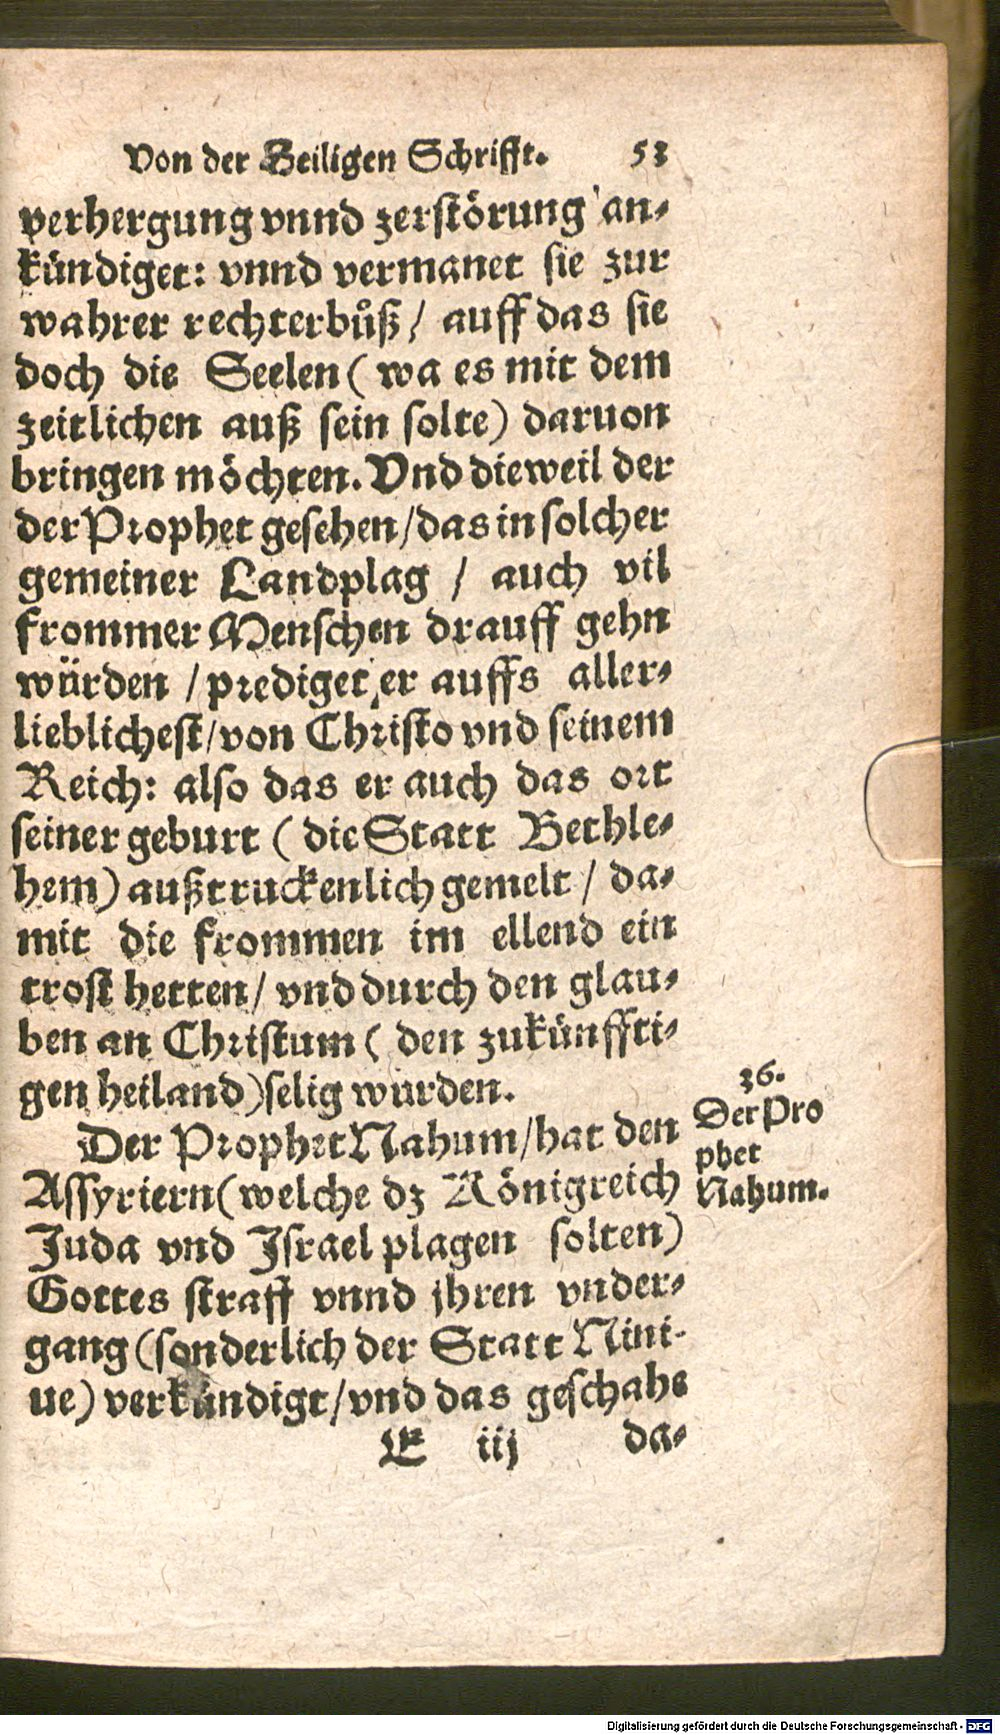 Von der Heiligen Schrifft. 53
verhergung vnnd zerstörung an-
kündiget: vnnd vermanet sie zur
wahrer rechter bůß / auff das sie
doch die Seelen ( wa es mit dem
zeitlichen auß sein solte) daruon
bringen möchten. Vnd dieweil der
der Prophet gesehen / das in solcher
gemeiner Landplag / auch vil
frommer Menschen drauff gehn
würden / prediget er auffs aller-
lieblichest / von Christo vnd seinem
Reich: also das er auch das ort
seiner geburt ( die Statt Bethle-
hem) außtruckenlich gemelt / da-
mit die frommen im ellend ein
trost hetten / vnd durch den glau-
ben an Christum ( den zukünffti-
gen heiland )selig wurden.
Der Prophet Nahum / hat den
Assyriern (welche dz Königreich
Juda vnd Israel plagen solten)
Gottes straff vnnd jhren vnder-
gang (sonderlich der Statt Nini-
ue) verkündigt / vnd das geschahe
E iij da-
36.
Der Pro
phet
Nahum.
Digitalisierung gefördert durch die Deutsche Forschungsgemeinschaft - DFG